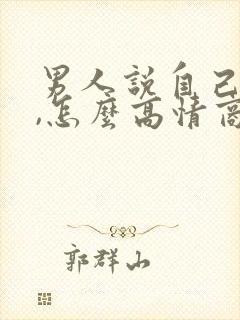 男人說自己
,怎麼高情商
郭群山